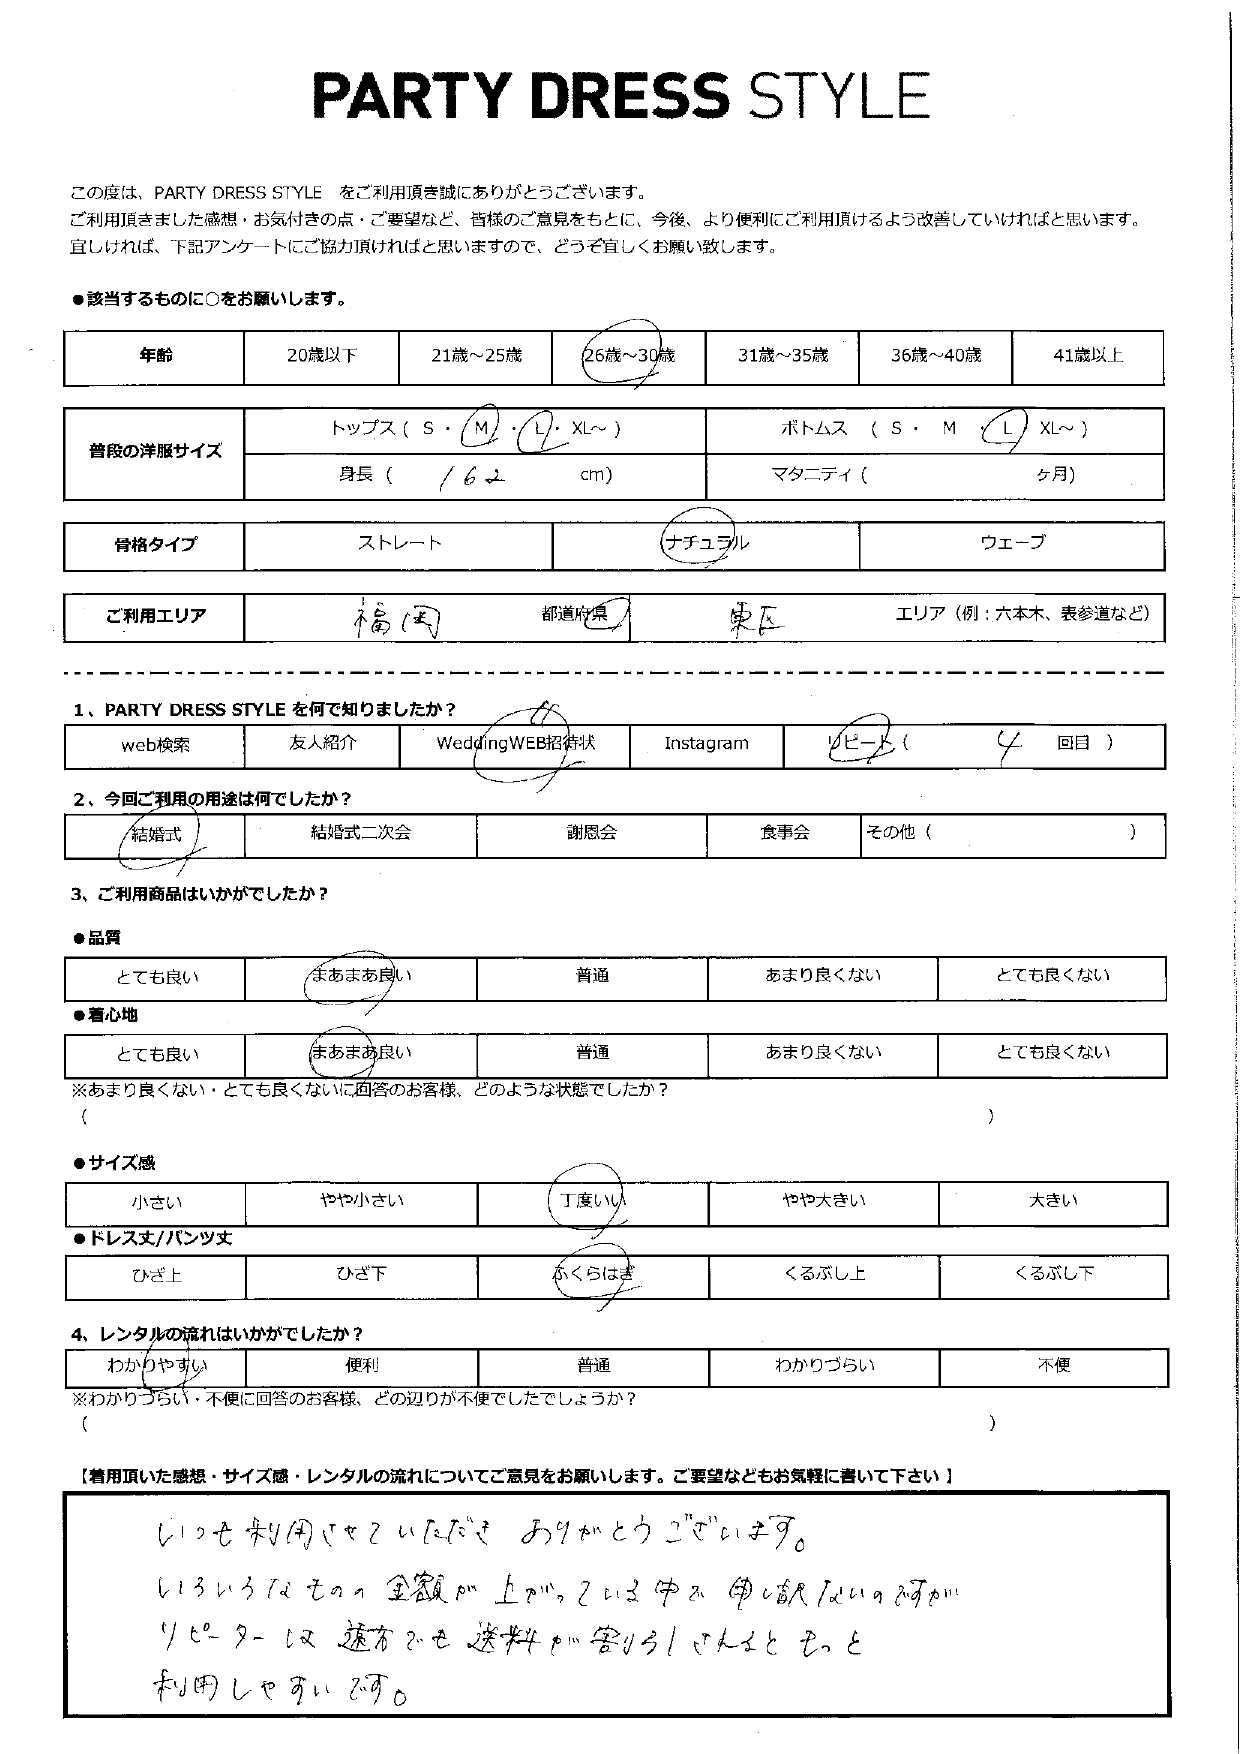 PARTY DRESS STYLE
この度は、PARTY DRESS STYLE をご利用頂き誠にありがとうございます。
ご利用頂きました感想・お気付きの点・ご要望など、皆様のご意見をもとに、今後、より便利にご利用頂けるよう改善していければと思います。
宜しければ、下記アンケートにご協力頂ければと思いますので、どうぞ宜しくお願い致します。
●該当するものに○をお願いします。
年齢 20歳以下 21歳～25歳 26歳～30歳 31歳～35歳 36歳～40歳 41歳以上
普段の洋服サイズ トップス ( S ・ M ・ L ・ XL～ ) ボトムス ( S ・ M ・ L ・ XL～ )
身長 ( 162 cm) マタニティ ( ヶ月)
骨格タイプ ストレート ナチュラル ウェーブ
ご利用エリア 福岡 都道府県 東区 エリア（例：六本木、表参道など）
1、PARTY DRESS STYLE を何で知りましたか？
web検索 友人紹介 WeddingWEB招待状 Instagram リピート ( 4 回目 )
2、今回ご利用の用途は何でしたか？
結婚式 結婚式二次会 謝恩会 食事会 その他 ( )
3、ご利用商品はいかがでしたか？
●品質
とても良い まあまあ良い 普通 あまり良くない とても良くない
●着心地
とても良い まあまあ良い 普通 あまり良くない とても良くない
※あまり良くない・とても良くないに回答のお客様、どのような状態でしたか？
( )
●サイズ感
小さい やや小さい 丁度いい やや大きい 大きい
●ドレス丈/パンツ丈
ひざ上 ひざ下 ふくらはぎ くるぶし上 くるぶし下
4、レンタルの流れはいかがでしたか？
わかりやすい 便利 普通 わかりづらい 不便
※わかりづらい・不便に回答のお客様、どの辺りが不便でしたでしょうか？
( )
【着用頂いた感想・サイズ感・レンタルの流れについてご意見をお願いします。ご要望などもお気軽に書いて下さい 】
いつも利用させていただき ありがとうございます。
いろいろなものの 金額が 上がっている中で 申し訳ないのですが
リピーターは 遠方でも 送料が 割り引されると もっと
利用しやすいです。